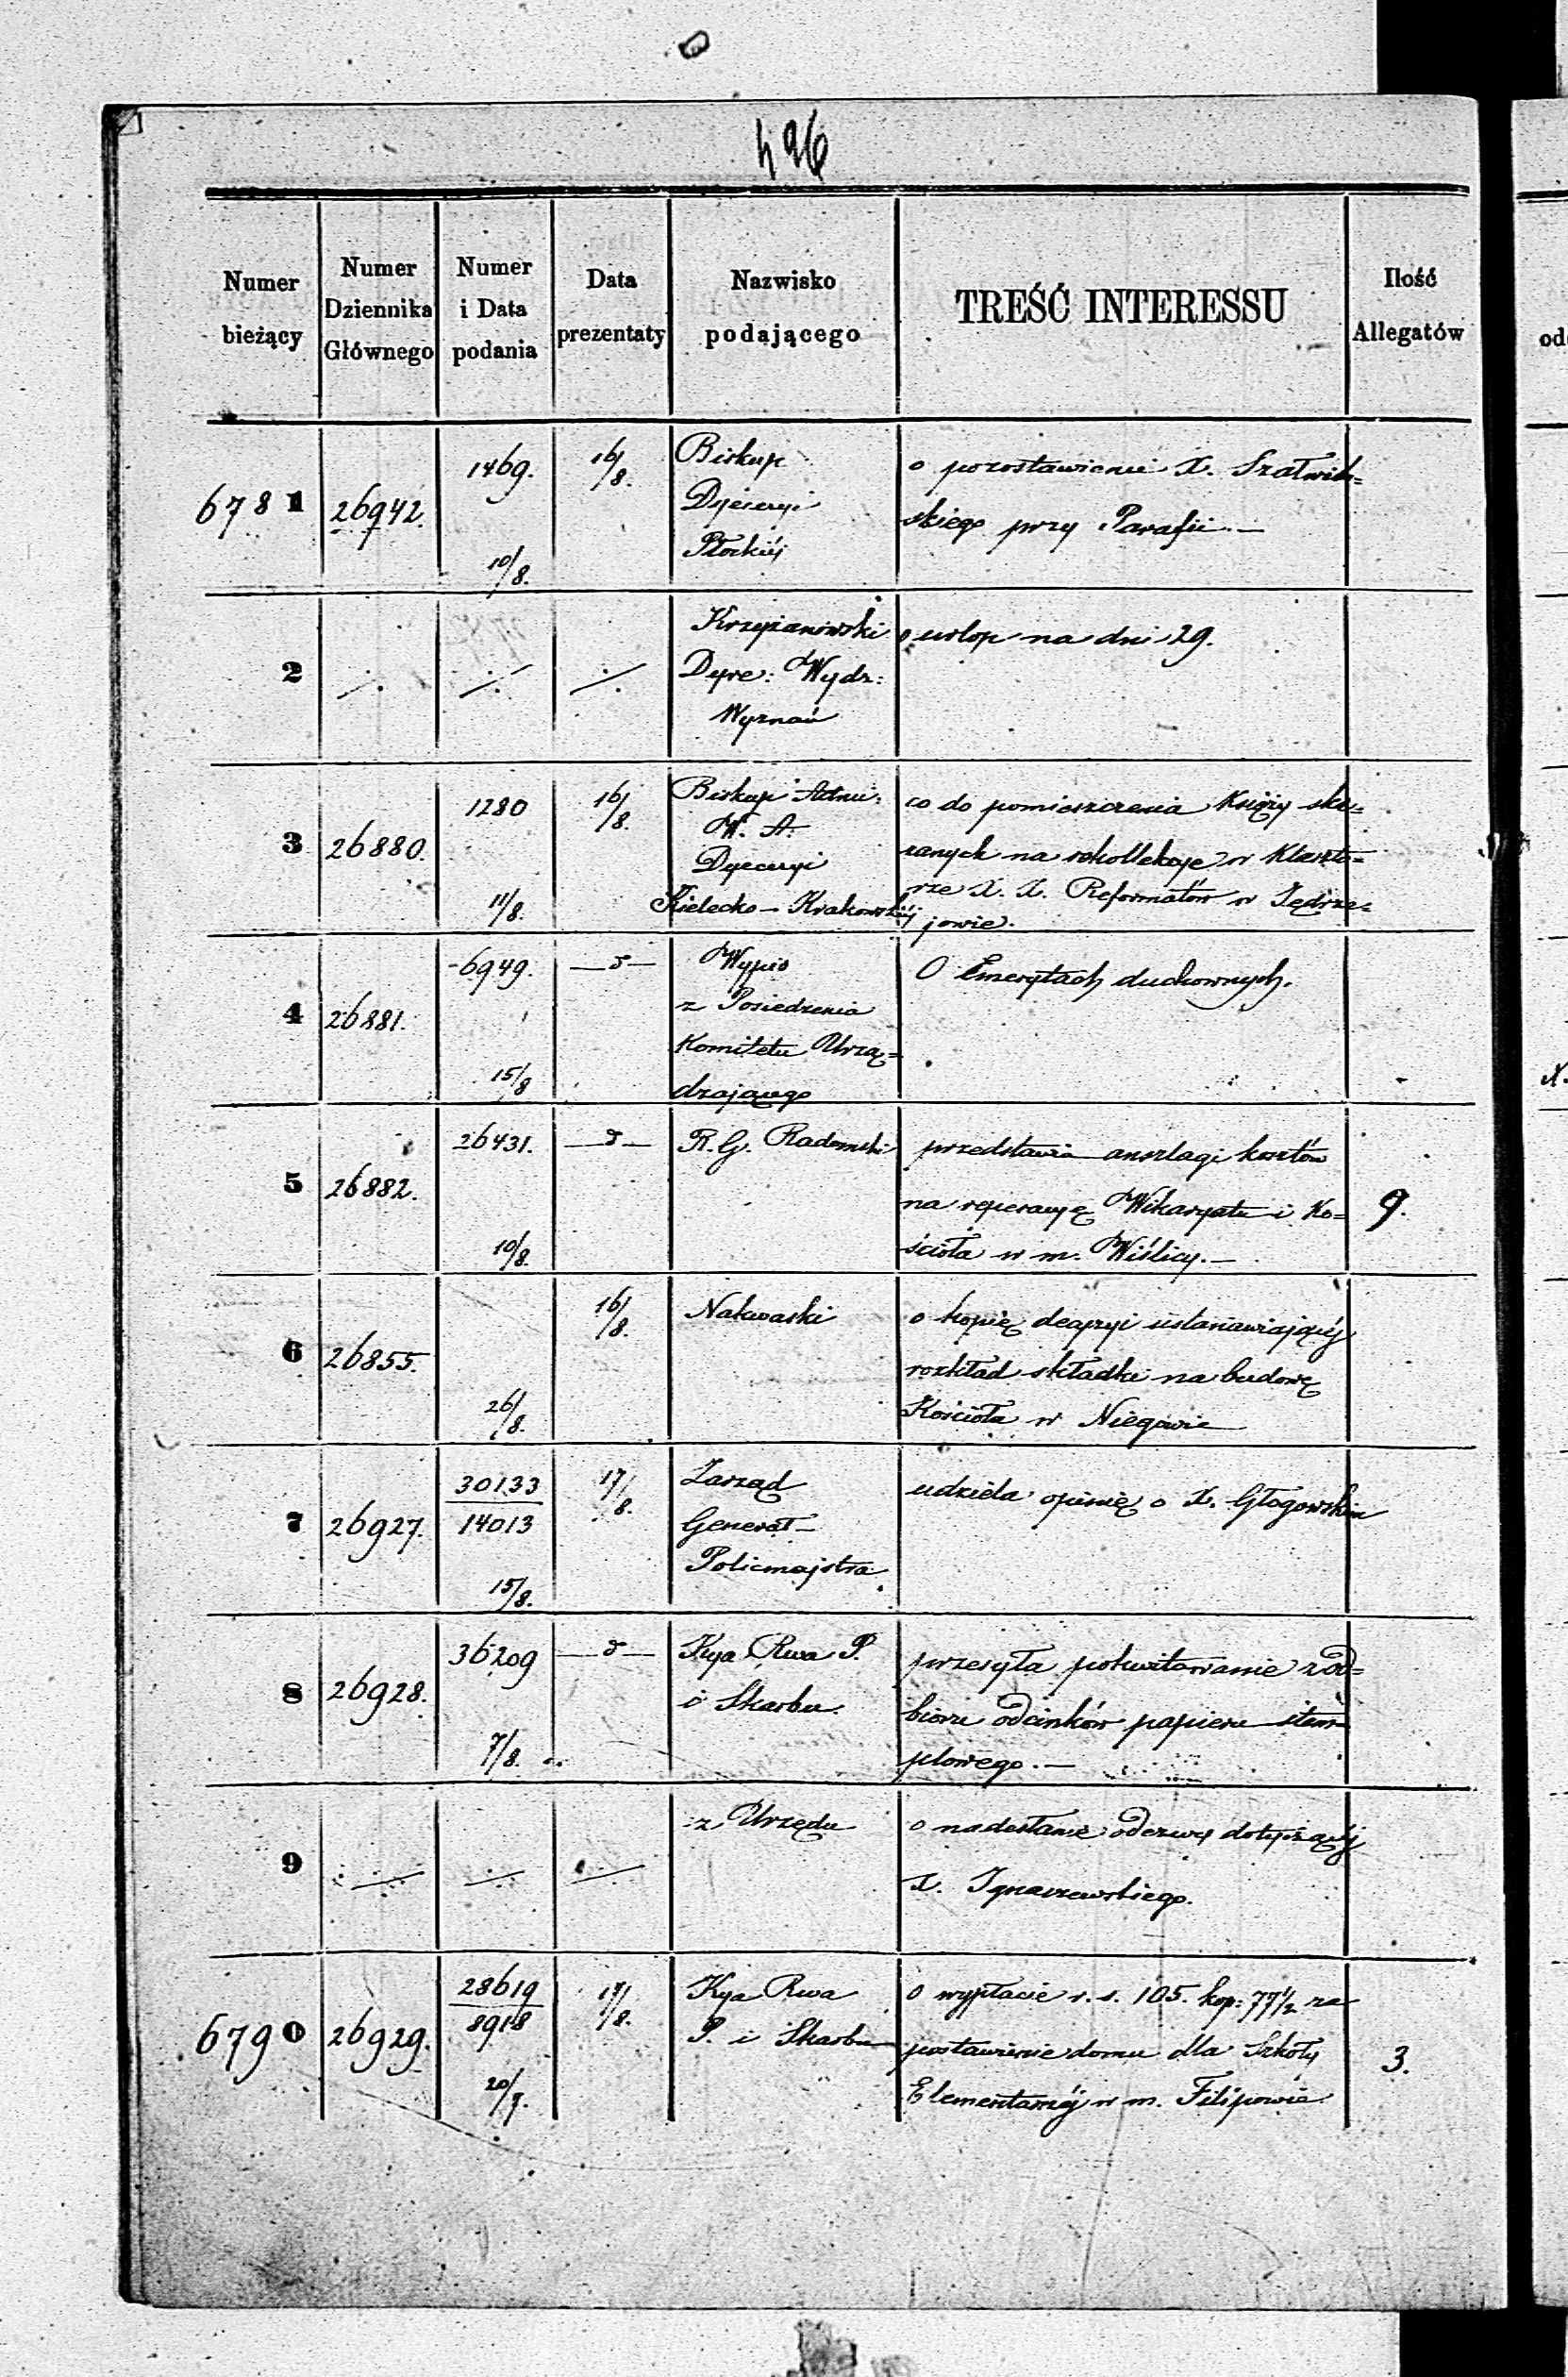 496
Numer bieżący | Numer Dziennika Głównego | Numer i Data podania | Data prezentaty | Nazwisko podającego | TREŚĆ INTERESSU | Ilość Allegatów
6781 | 26942. | 1469. 10/8. | 16/8. | Biskup Dyecezyi Płockiéj | o pozostawienie X. Szatwiń=
skiego przy Parafii.—
2 | ·/. | ·/. | ·/. | Krzyżanowski Dyre: Wydz: Wyznań | o urlop na dni 29.
3 | 26880. | 1280 11/8. | 16/8. | Biskup Admi: W. A. Dyecezyi Kielecko-Krakowskiéj | co do pomieszczenia Księży ska=
zanych na rekollekcje w Klaszto=
rze X. X. Reformatów w Jędrze=
jowie.
4 | 26881. | 6949. 15/8 | —d— | Wypis z Posiedzenia Komitetu Urzą=
dzającego | O Emerytach duchownych.
5 | 26882. | 26431. 10/8. | —d— | R. G. Radomski | przedstawia anszlagi kosztów
na reperacyę Wikaryatu i Ko=
ścioła w m. Wiślicy.— | 9.
6 | 26855. | 26/8. | 16/8. | Nakwaski | o kopię decyzyi ustanawiającéj
rozkład składki na budowę
Kościoła w Niegowie
7 | 26927. | 30133 14013 15/8. | 17/8. | Zarząd Generał-Policmajstra | udziela opinię o X. Głogowskim
8 | 26928. | 36209 7/8. | —d— | Kya Rwa P. i Skarbu | przesyła pokwitowanie z od=
bioru odcinków papieru stem=
plowego.—
9 | ·/. | ·/. | ·/. | z Urzędu | o nadesłanie odezwy dotyczącéj
X. Ignaczewskiego.
6790 | 26929. | 28619 8918 | 17/8. | Kya Rwa P. i Skarbu | o wypłacie r. s. 105. kop: 77 1/2 za
postawienie domu dla Szkoły
Elementarnéj w m. Filipowie | 3.
od
X.